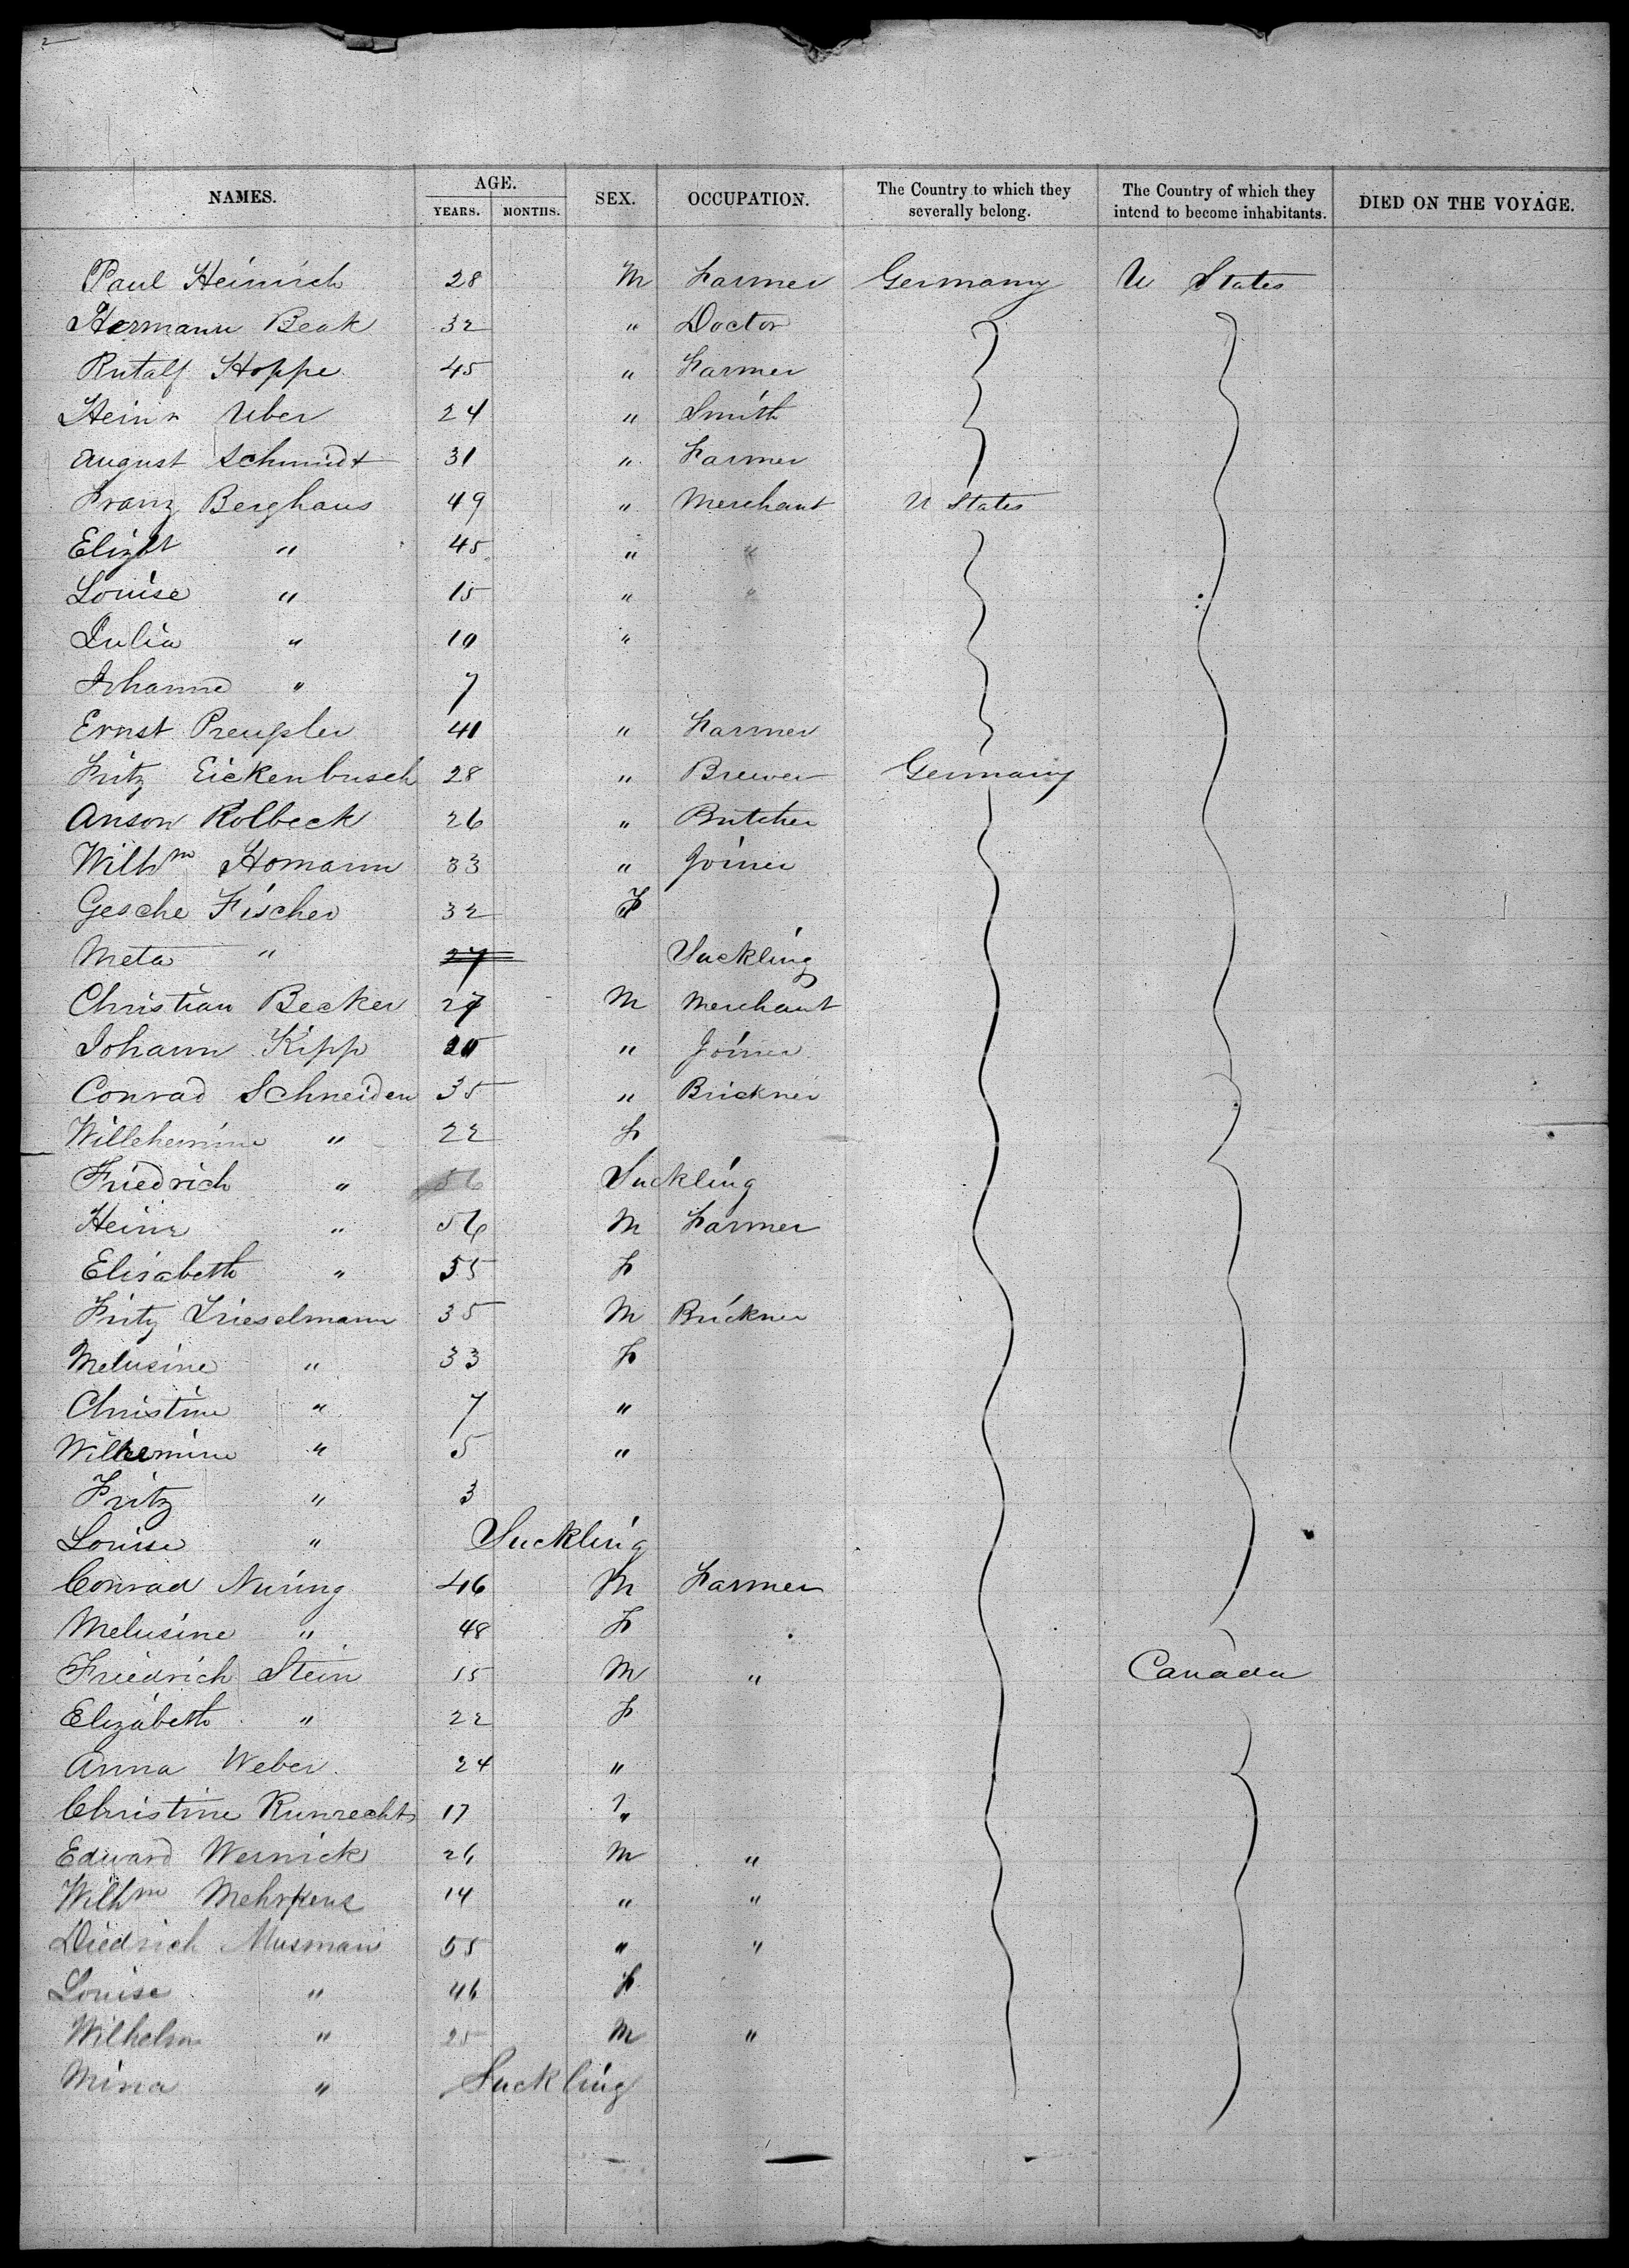 2
NAMES. AGE. YEARS. MONTHS. SEX. OCCUPATION. The Country to which they severally belong. The Country of which they intend to become inhabitants. DIED ON THE VOYAGE.
Paul Heinrich 28 M Farmer Germany U States
Hermann Beak 32 " Doctor
Rutalf Hoppe 45 " Farmer
Heinr Uber 24 " Smith
August Schmidt 31 " Farmer
Franz Berghaus 49 " Merchant U States
Elizbt " 45 " "
Louise " 15 " "
Julia " 10 "
Johanne " 7
Ernst Preupler 41 " Farmer
Fritz Eickenbusch 28 " Brewer Germany
Anson Rolbeck 26 " Butcher
Wilhm Homann 33 " Joiner
Gesche Fischer 32 F
Meta " 27 Suckling
Christian Becker 27 M Merchant
Johann Kipp " Joiner
Conrad Schneider 35 " Brickner
Willehemine " 22 F
Friedrich " 56 Suckling
Heinr " 56 M Farmer
Elisabeth " 55 F
Fritz Trieselmann 35 M Brickner
Melusine " 33 F
Christine " 7 "
Wilhemine " 5 "
Fritz " 3
Louise " Suckling
Conrad Nuring 46 M Farmer
Melusine " 48 F
Friedrich Stein 15 M " Canada
Elizabeth " 22 F
Anna Weber 24 "
Christine Runrechts 17 "
Edward Wernick 26 M "
Wilhm Mehrkens 14 " "
Diedrich Musman 55 " "
Louise " 46 F
Wilhelm " 25 M "
Mina " Suckling